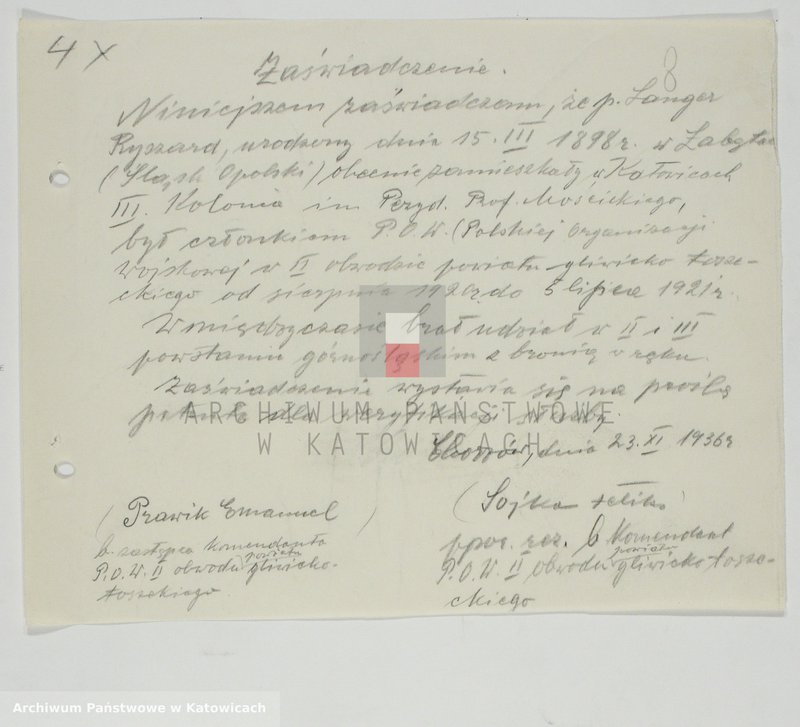 4 x
8
Zaświadczenie.
Niniejszem zaświadczam, że p. Langer
Ryszard, urodzony dnia 15. III 1898 r. w
(Śląsk Opolski) obecnie zamieszkały w Katowicach
III. Kolonia im Prezyd. Prof. Mościckiego,
był członkiem P.O.W. (Polskiej Organizacji
Wojskowej w II obwodzie powiatu gliwicko tosze-
ckiego od sierpnia 1920 r. do 5 lipca 1921 r.
W międzyczasie brał udział w II i III
powstaniu górnośląskim z bronią w ręku.
Zaświadczenie wystawia się na prośbę
ARCHIWUM PAŃSTWOWE
W KATOWICACH
Chorzów, dnia 23. XI 1936 r
(Prawik Emanuel)
b. zastępca Komendanta
P.O.W. II obwodu powiatu gliwicko-
toszeckiego
(Sojka Feliks)
ppor. rez. b Komendant
P.O.W. II obwodu powiatu gliwicko tosze-
ckiego
Archiwum Państwowe w Katowicach